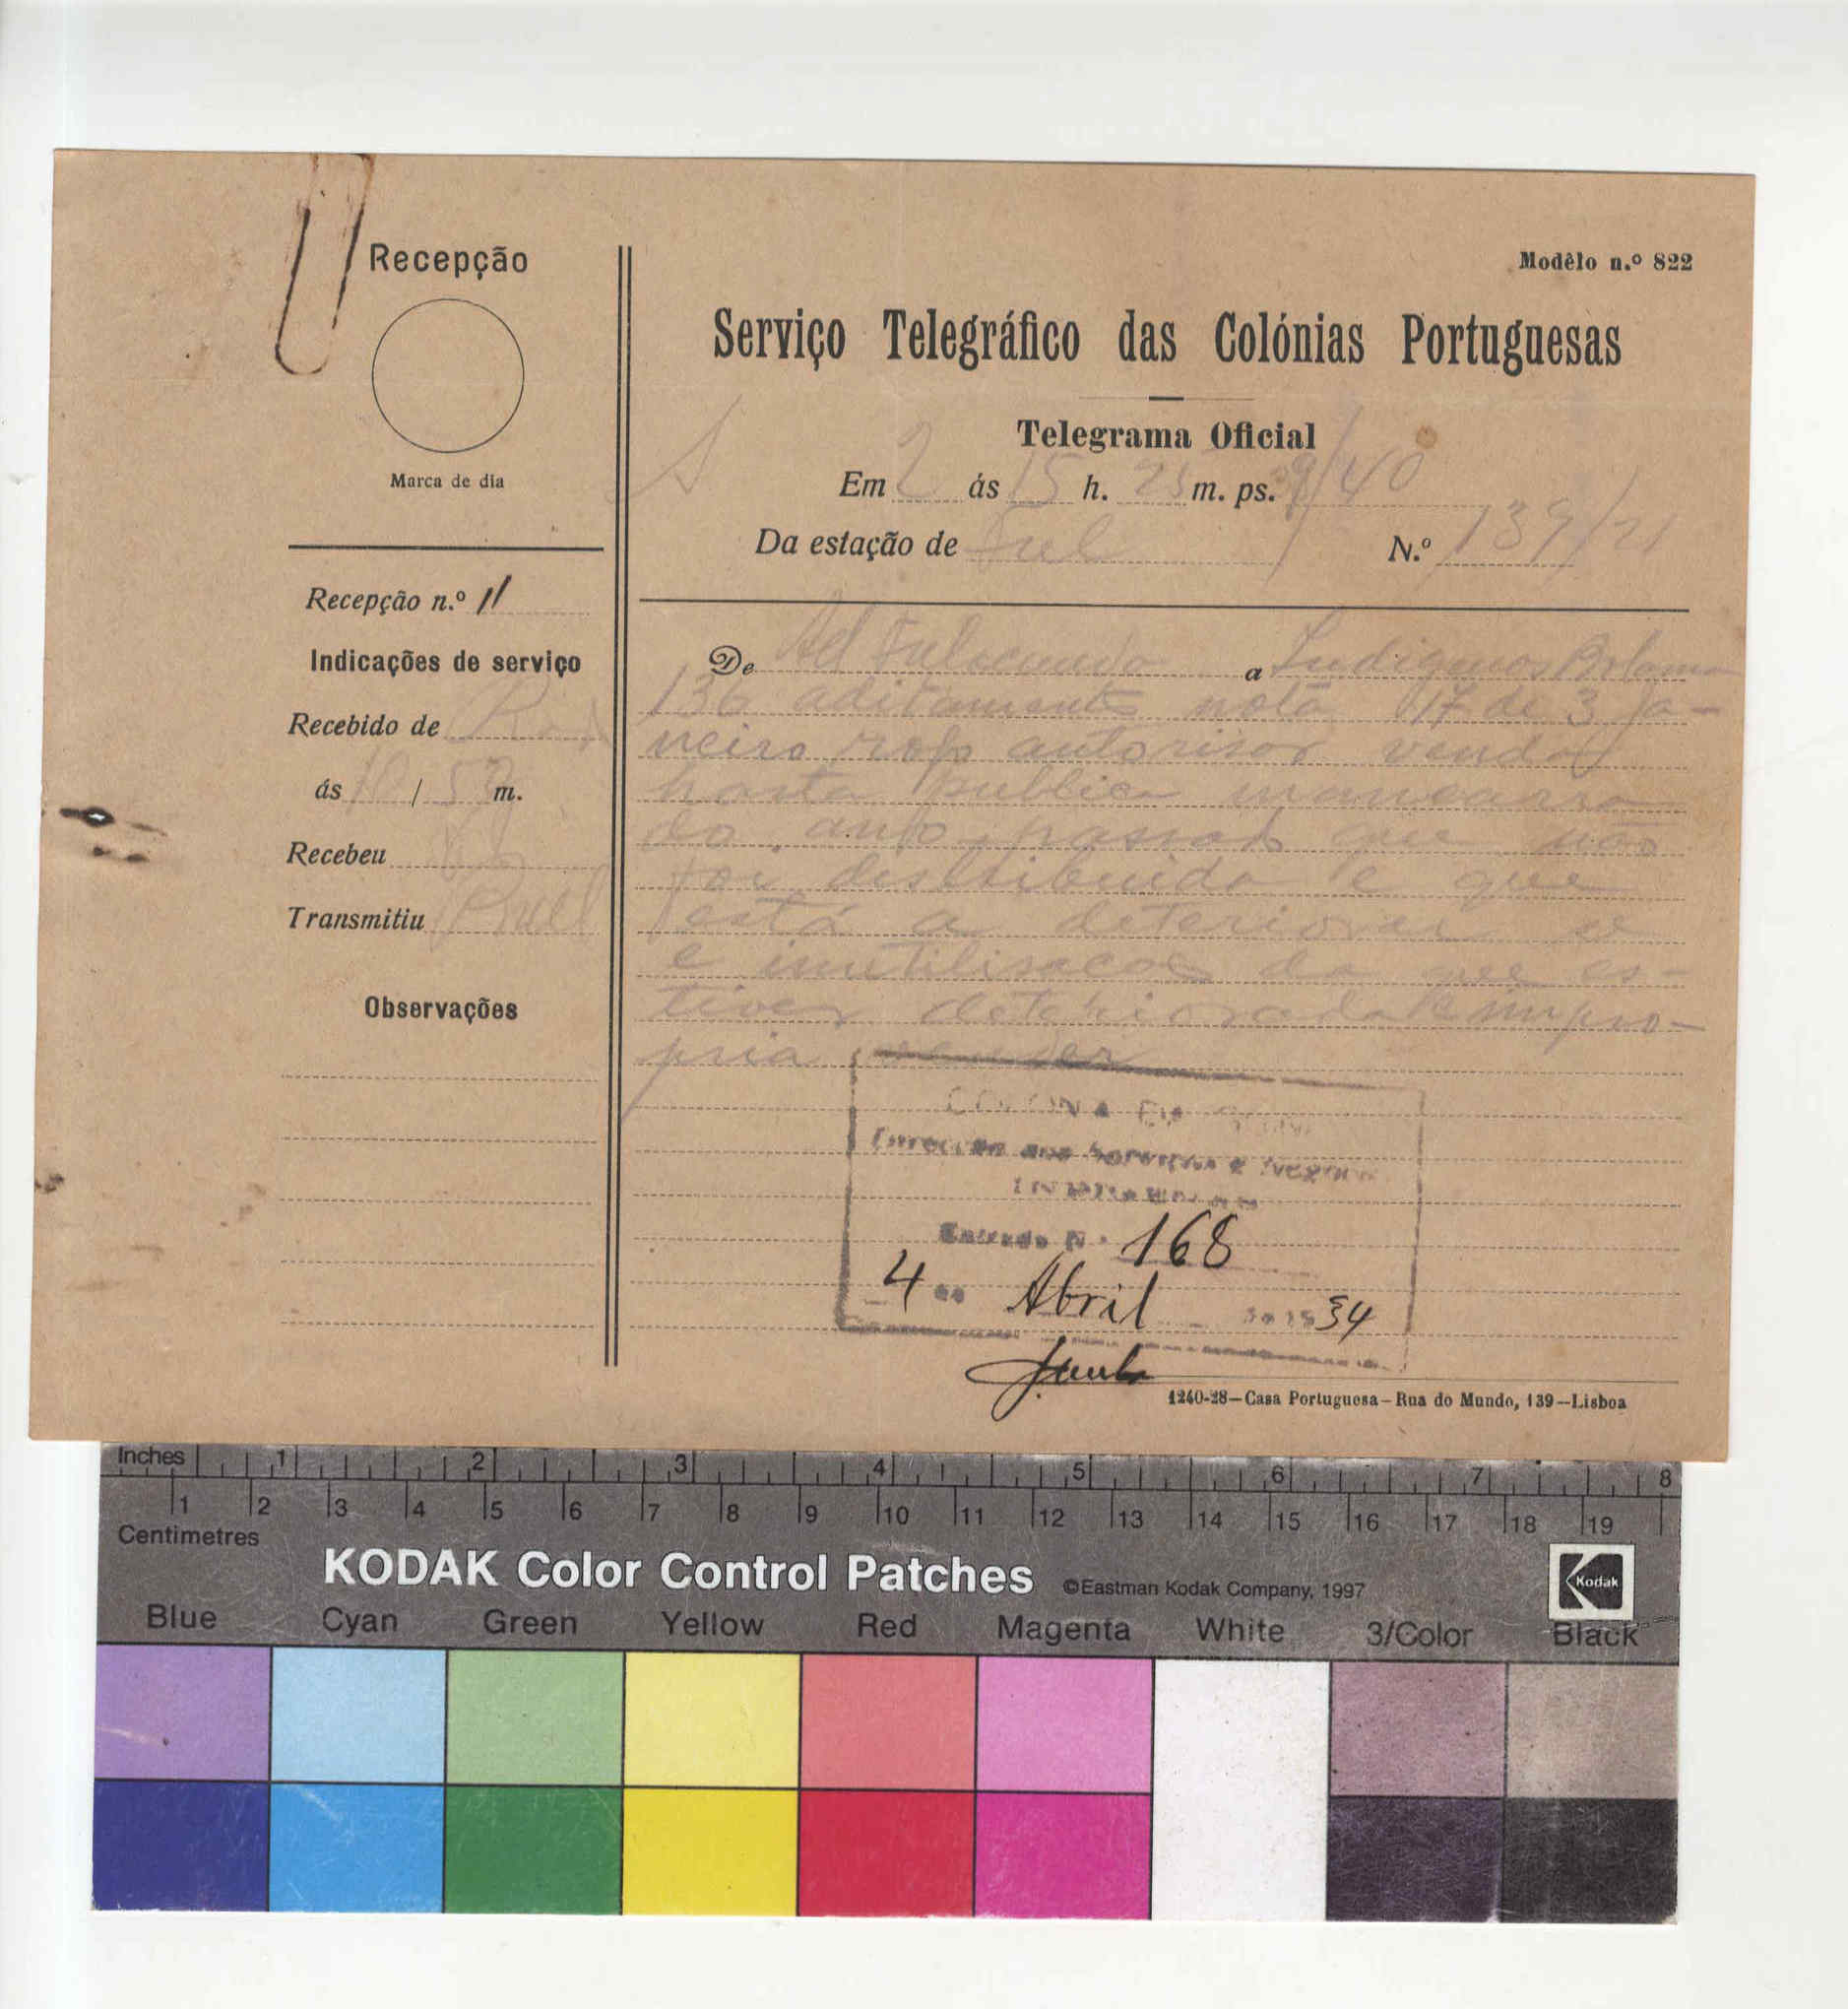 Recepção
Marca de dia
Recepção n.º 11
Indicações de serviço
Recebido de
ás 10 / 52 m.
Recebeu
Transmitiu
Observações
Modêlo n.º 822
Serviço Telegráfico das Colónias Portuguesas
Telegrama Oficial
Em 2 ás 15 h. 25 m. ps. 39/40
Da estação de Ful N.º 139/21
De Ad Fulacunda a Indigenas Bolama
136 aditamento nota 117 de 3 Ja-
neiro rogo autorisar venda
hasta publica mancarra
do ano passado que não
foi distribuida e que
está a deteriorar se
e inutilisacao da que es-
tiver deteriorada e impro-
pria vender
COLONIA DA GUINÉ
Direcção dos Serviços e Negocios
INDIGENAS
Entrada N.º 168
4 de Abril de 1934
1240-28—Casa Portuguesa—Rua do Mundo, 139—Lisboa
Inches 1 2 3 4 5 6 7 8
1 2 3 4 5 6 7 8 9 10 11 12 13 14 15 16 17 18 19
Centimetres
KODAK Color Control Patches ©Eastman Kodak Company, 1997 Kodak
Blue Cyan Green Yellow Red Magenta White 3/Color Black